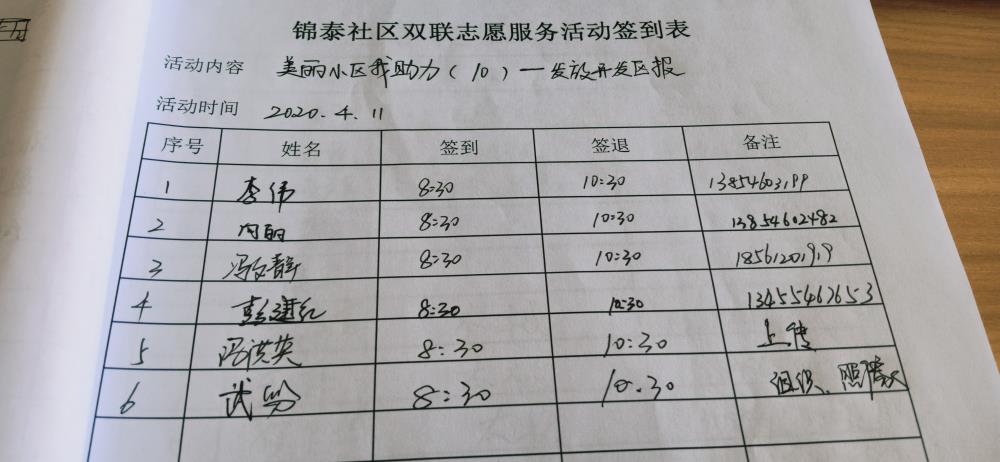 锦泰社区双联志愿服务活动签到表
活动内容 美丽小区我助力(10)一发放开发区报
活动时间 2020.4.11
序号 姓名 签到 签退 备注
1 李伟 8:30 10:30 13854603199
2 闫丽 8:30 10:30 13854602482
3 冯文静 8:30 10:30 18561201919
4 彭建红 8:30 10:30 13455462653
5 冯洪英 8:30 10:30 上传
6 武 8:30 10.30 组织、照